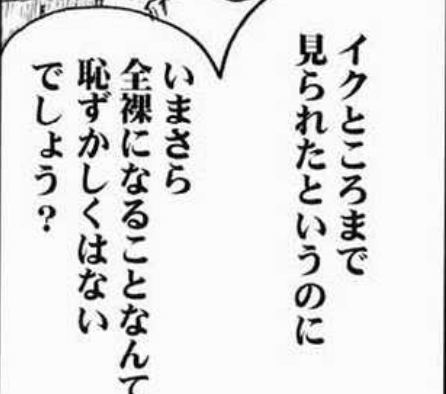 イクところまで
見られたというのに
いまさら
全裸になることなんて
恥ずかしくはない
でしょう？